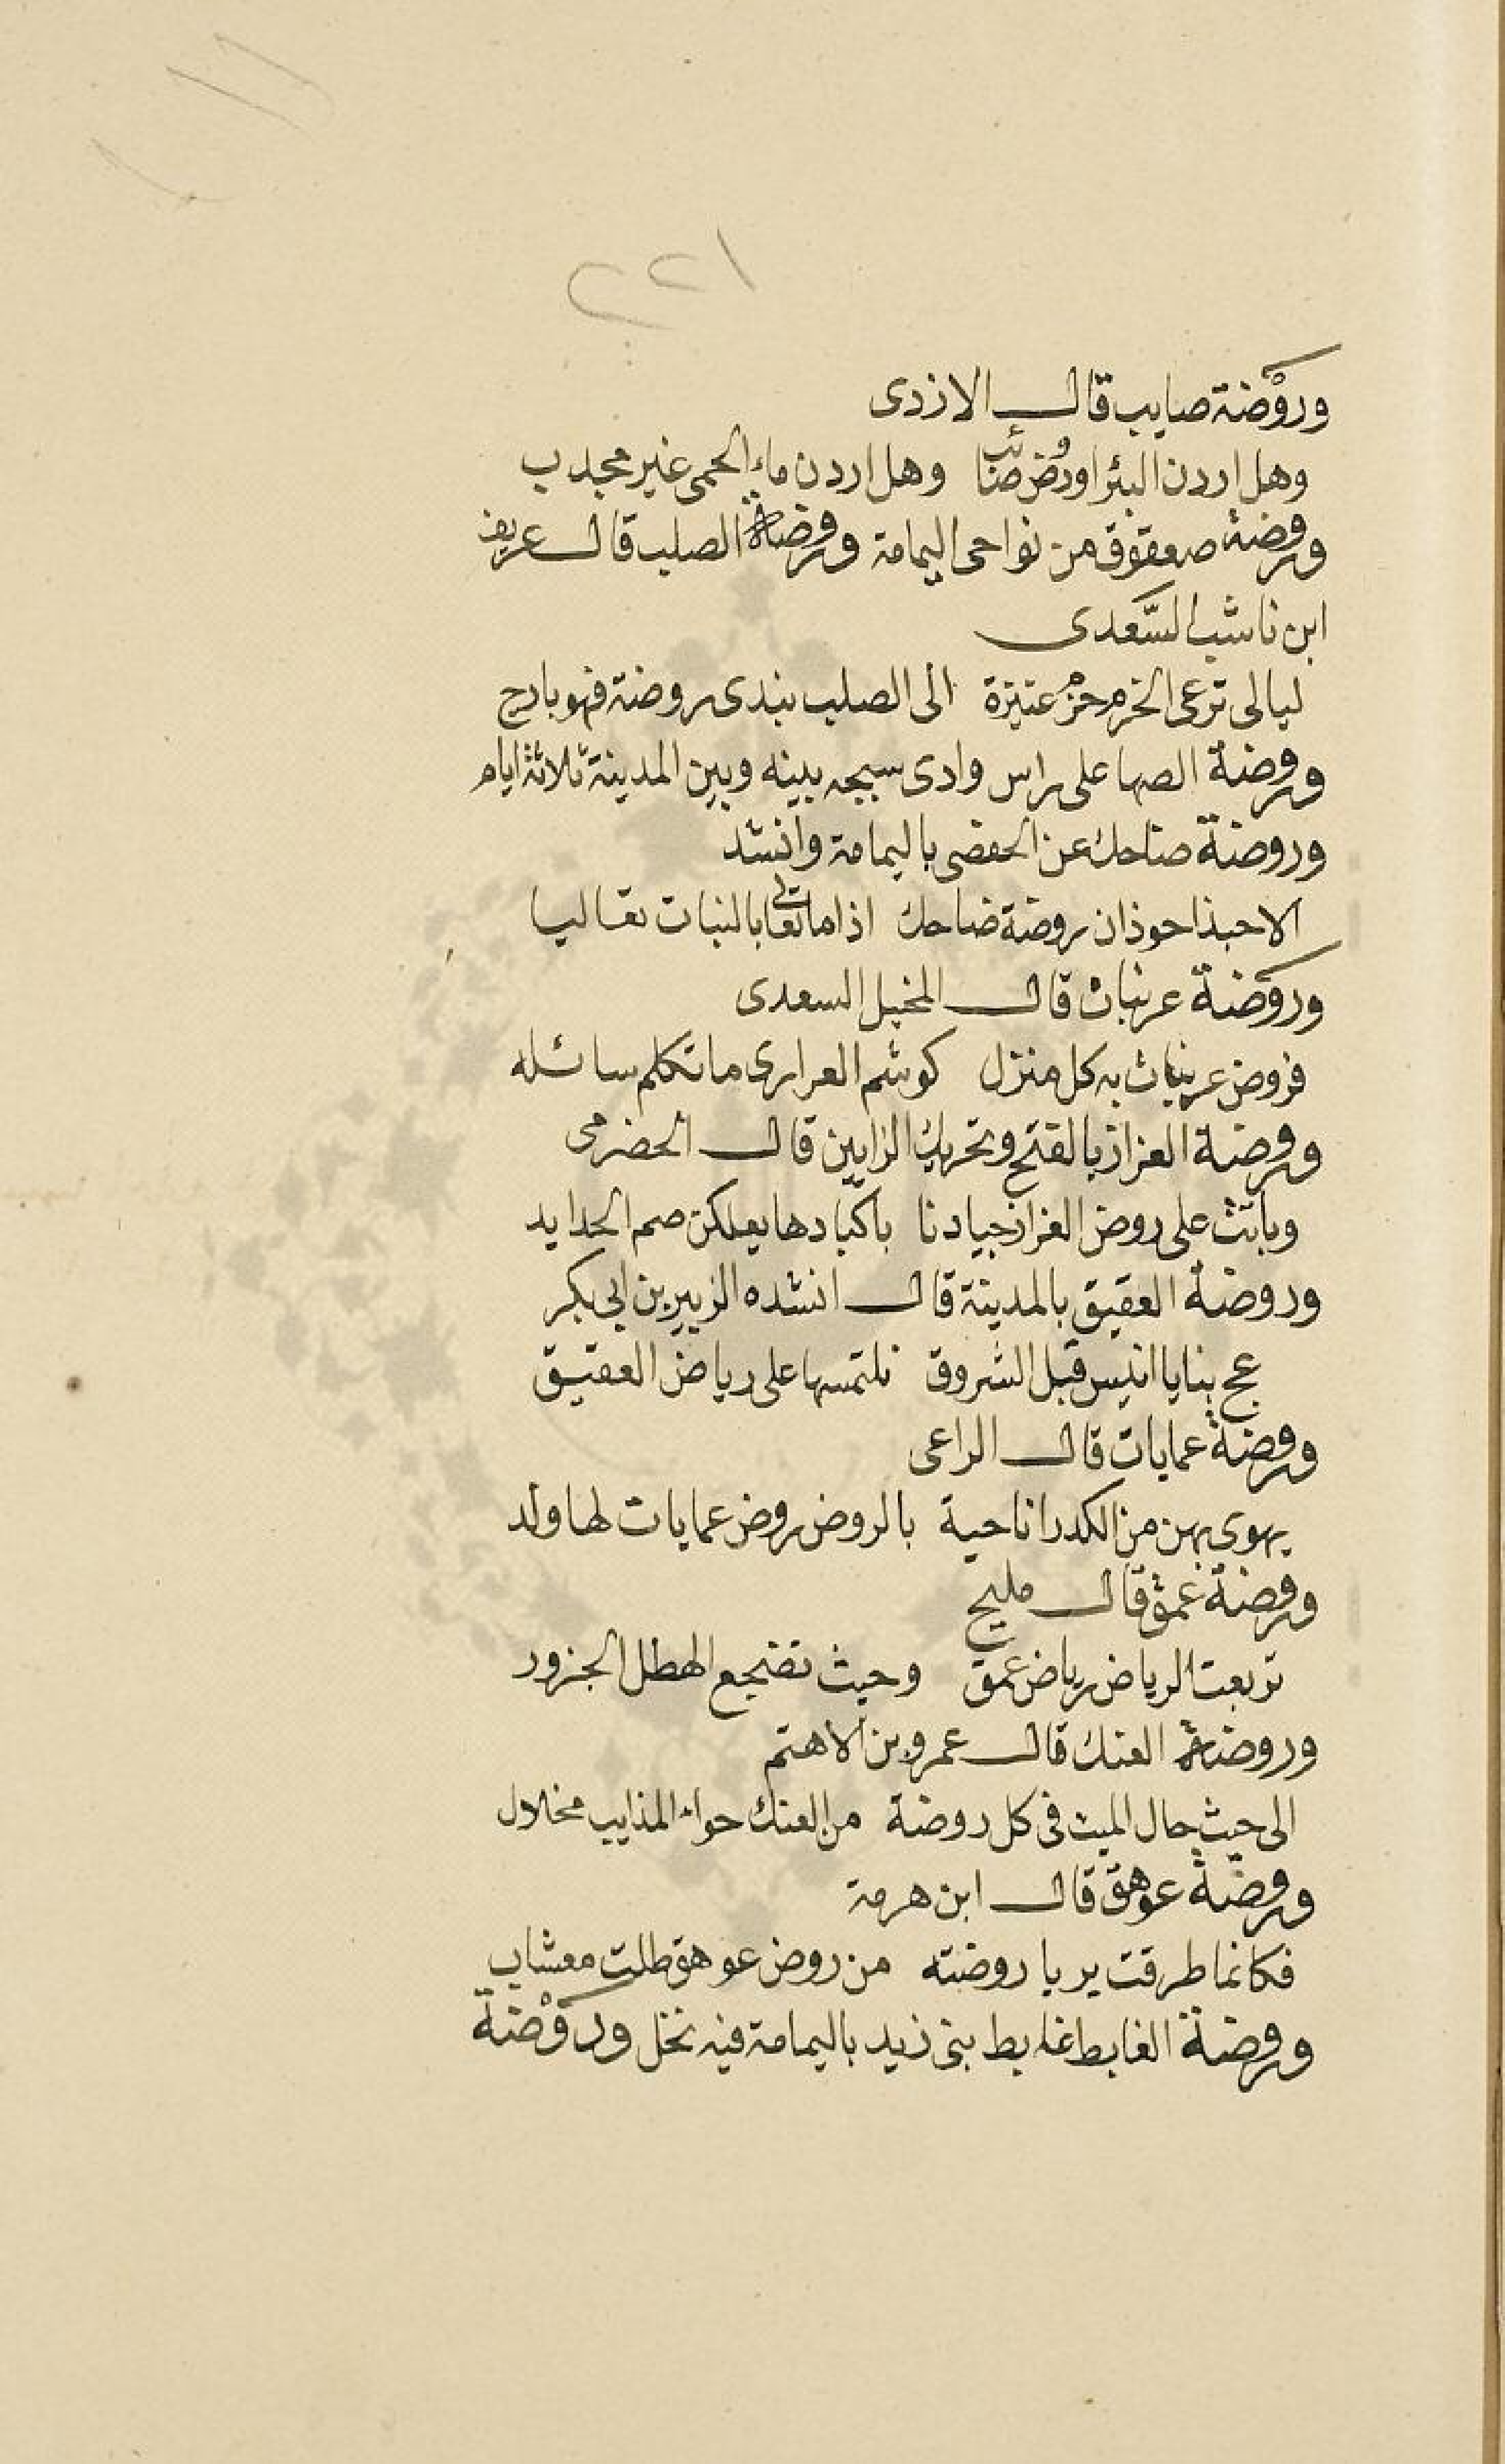 ٢٢١
وروْضة صايب قالــــ الازدى
وهل اردن البئر اوروض صائب وهل اردن ماء الحمى غير مجدب
وروضة صعقوق من نواحى اليمامة وروضة الصلب قالــــ عريف
ابن ناشب السَّعدى
ليالى ترعى الخزم حزم عنيزة الى الصلب يندى روضة فهو بارح
وروضة الصها على راس وادى سبيحه بينه وبين المدينة ثلاثة ايام
وروضة ضاحك عن الحفصى باليمامة وانشد
الا حبذا حوذان روضة ضاحك اذا ما تعالى بالنبات تعاليا
وروضة عرينات قالــــ المخبل السعدى
فروض عرينات به كل منزل كوشم العرارى ما تكلم سائله
وروضة العزاز بالفتح وتحريك الزايين قالــــ الحضرمى
وباتت على روض العزاز جيادنا باكبادها يعلكن صم الحدايد
وروضة العقيق بالمدينة قالــــ انشده الزبير بن ابى بكر
عج بنا يا انيس قبل الشروق نلتمسها على رياض العقيق
وروضة عمايات قالــــ الراعى
يهوى بهن من الكدرا ناحية بالروض روض عمايات لها ولد
وروضة غمق قالــــ مليح
تربعت الرياض رياض عمق وحيث تضجع الهطل الجزور
وروضة العنك قالــــ عمرو بن الاهتم
الى حيث حال الميث فى كل روضة من العنك حواء المذايب محلال
وروضة عوهق قالــــ ابن هرمة
فكانما طرقت بريا روضته من روض عوهق طلت معشاب
وروضة الغابط غابط بنى زيد باليمامة فيه نخل وروْضة